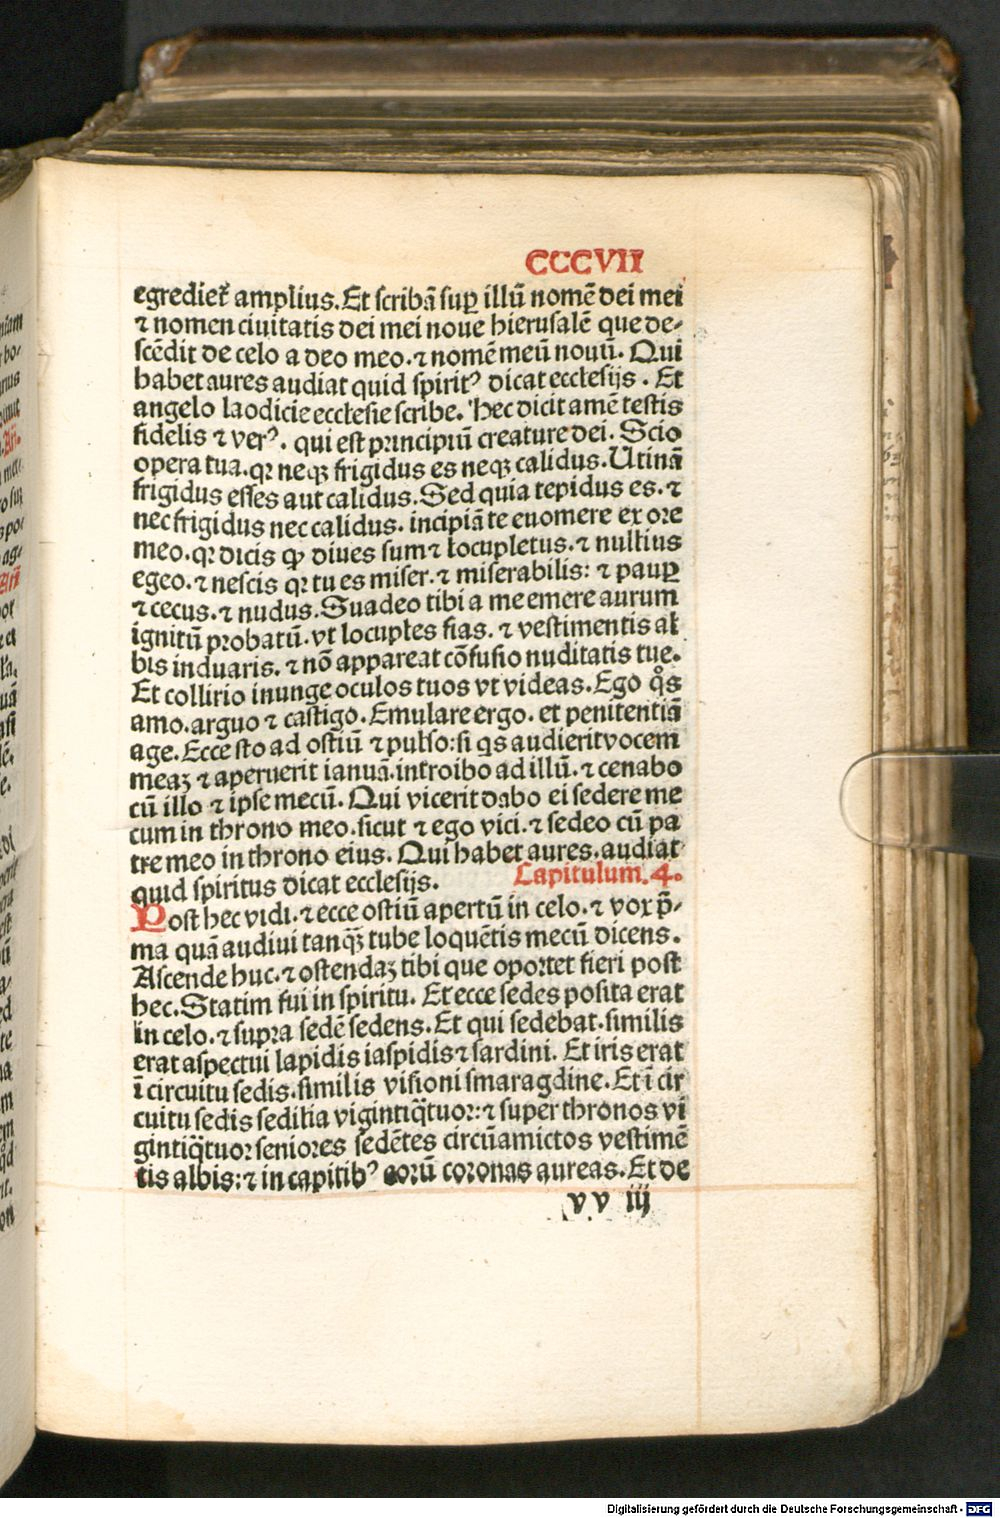 CCCVII
egrediet᷑ amplius. Et scribā sup̱ illū nomē dei mei
⁊ nomen ciuitatis dei mei noue hierusalē que de-
scēdit de celo a deo meo. ⁊ nomē meū nouū. Qui
habet aures audiat quid spiritꝰ dicat ecclesijs. Et
angelo laodicie ecclesie scribe. Hec dicit amē testis
fidelis ⁊ verꝰ. qui est principiū creature dei. Scio
opera tua. qꝛ neqꝫ frigidus es neqꝫ calidus. Utinā
frigidus esses aut calidus. Sed quia tepidus es. ⁊
nec frigidus nec calidus. incipiā te euomere ex ore
meo. qꝛ dicis ꝙ diues sum ⁊ locupletus. ⁊ nullius
egeo. ⁊ nescis qꝛ tu es miser. ⁊ miserabilis: ⁊ paup̱
⁊ cecus. ⁊ nudus. Suadeo tibi a me emere aurum
ignitū probatū. vt locuples fias. ⁊ vestimentis al
bis induaris. ⁊ nō appareat cōfusio nuditatis tue.
Et collirio inunge oculos tuos vt videas. Ego qͦs
amo. arguo ⁊ castigo. Emulare ergo. et penitentiā
age. Ecce sto ad ostiū ⁊ pulso: si qs audierit vocem
meaꝫ ⁊ aperuerit ianuā. introibo ad illū. ⁊ cenabo
cū illo ⁊ ipse mecū. Qui vicerit dabo ei sedere me
cum in throno meo. sicut ⁊ ego vici. ⁊ sedeo cū pa
tre meo in throno eius. Qui habet aures. audiat
quid spiritus dicat ecclesijs. Capitulum. 4.
Post hec vidi. ⁊ ecce ostiū apertū in celo. ⁊ vox p̄-
ma quā audiui tanqꝫ̄ tube loquētis mecū dicens.
Ascende huc. ⁊ ostendaꝫ tibi que oportet fieri post
hec. Statim fui in spiritu. Et ecce sedes posita erat
in celo. ⁊ supra sedē sedens. Et qui sedebat. similis
erat aspectui lapidis iaspidis ⁊ sardini. Et iris erat
ī circuitu sedis. similis visioni smaragdine. Et ī cir
cuitu sedis sedilia vigintiq̄tuor: ⁊ super thronos vi
gintiq̄tuor seniores sedētes circūamictos vestimē
tis albis: ⁊ in capitibꝰ eorū coronas aureas. Et de
v v iij
Digitalisierung gefördert durch die Deutsche Forschungsgemeinschaft - DFG